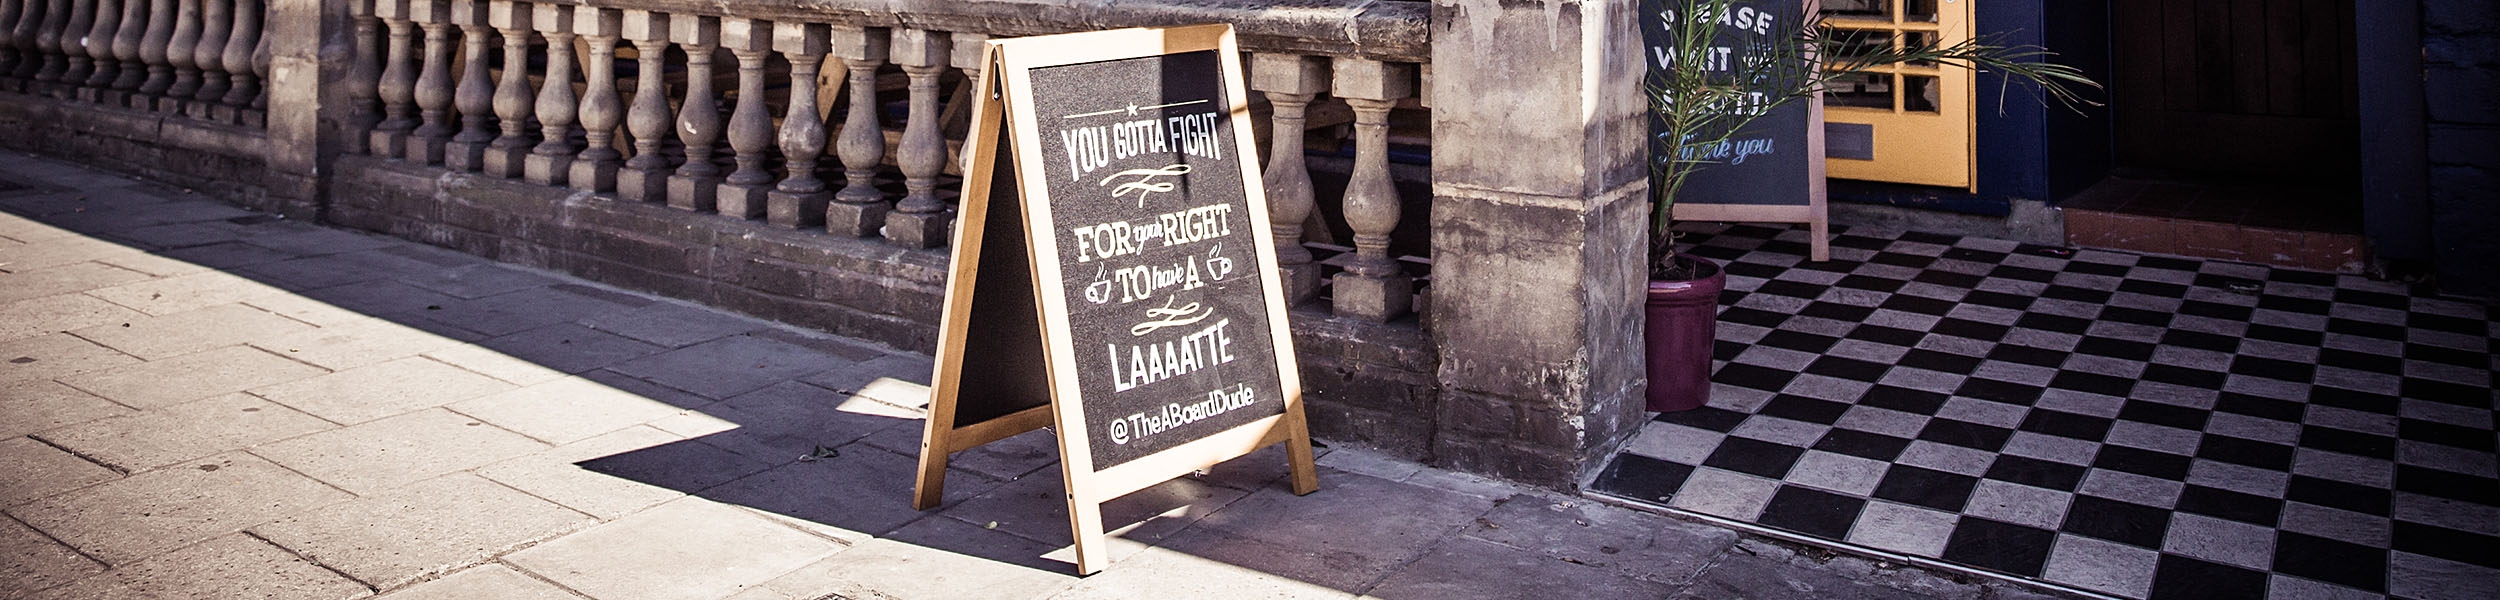 YOU GOTTA FIGHT
FOR your RIGHT
TO have A
LAAAATTE
@TheABoardDude
PLEASE
WAIT
Thank you